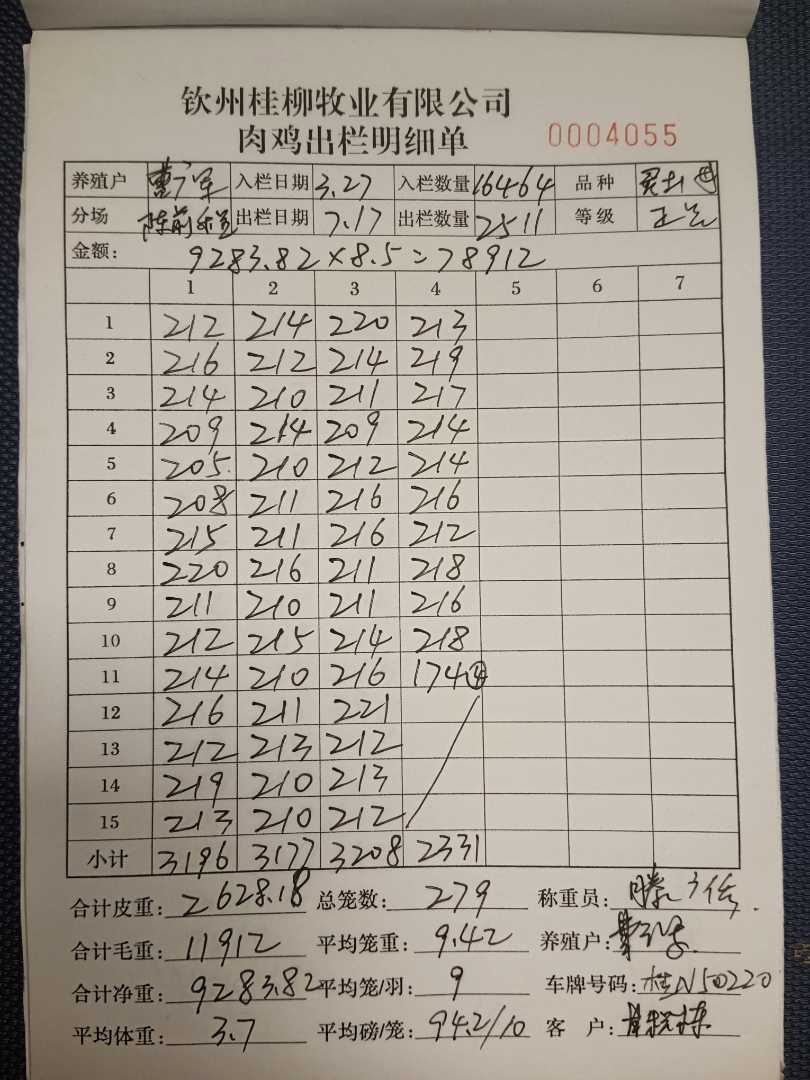 钦州桂柳牧业有限公司
肉鸡出栏明细单 0004055
养殖户 入栏日期 3.27 入栏数量 16464 品种
分场 陈前 出栏日期 7.17 出栏数量 2511 等级
金额: 9283.82×8.5=78912
1 2 3 4 5 6 7
1 212 214 220 213
2 216 212 214 219
3 214 210 211 217
4 209 214 209 214
5 205. 210 212 214
6 208 211 216 216
7 215 211 216 212
8 220 216 211 218
9 211 210 211 216
10 212 215 214 218
11 214 210 216 174④
12 216 211 221
13 212 213 212
14 219 210 213
15 213 210 212
小计 3196 3177 3208 2331
合计皮重: 2628.18 总笼数: 279 称重员:
合计毛重: 11912 平均笼重: 9.42 养殖户:
合计净重: 9283.82 平均笼/羽: 9 车牌号码: 桂N50220
平均体重: 3.7 平均磅/笼: 94.2/10 客 户: